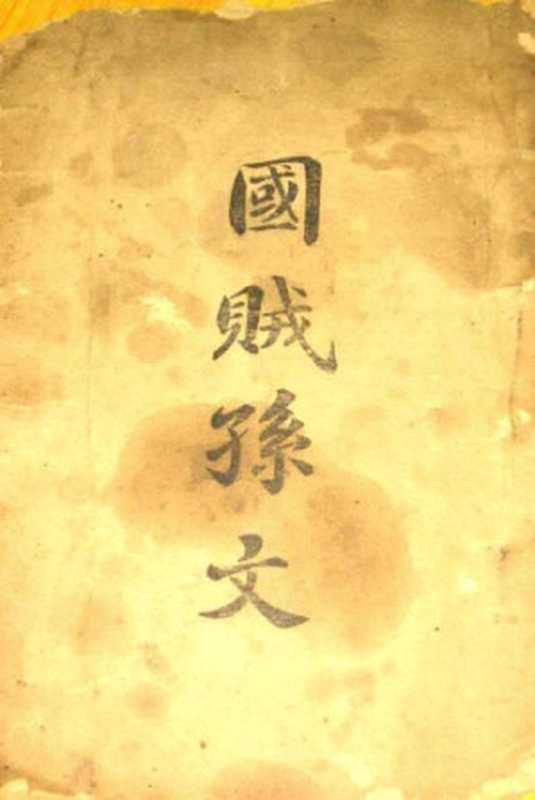 國賊孫文